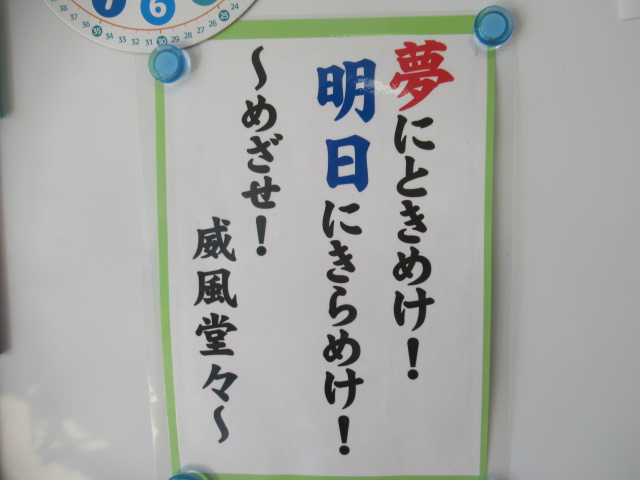 夢にときめけ！
明日にきらめけ！
～めざせ！
威風堂々～
7
6
38 37 36 35 34 33 32 31 30 29 28 27 26 25 24